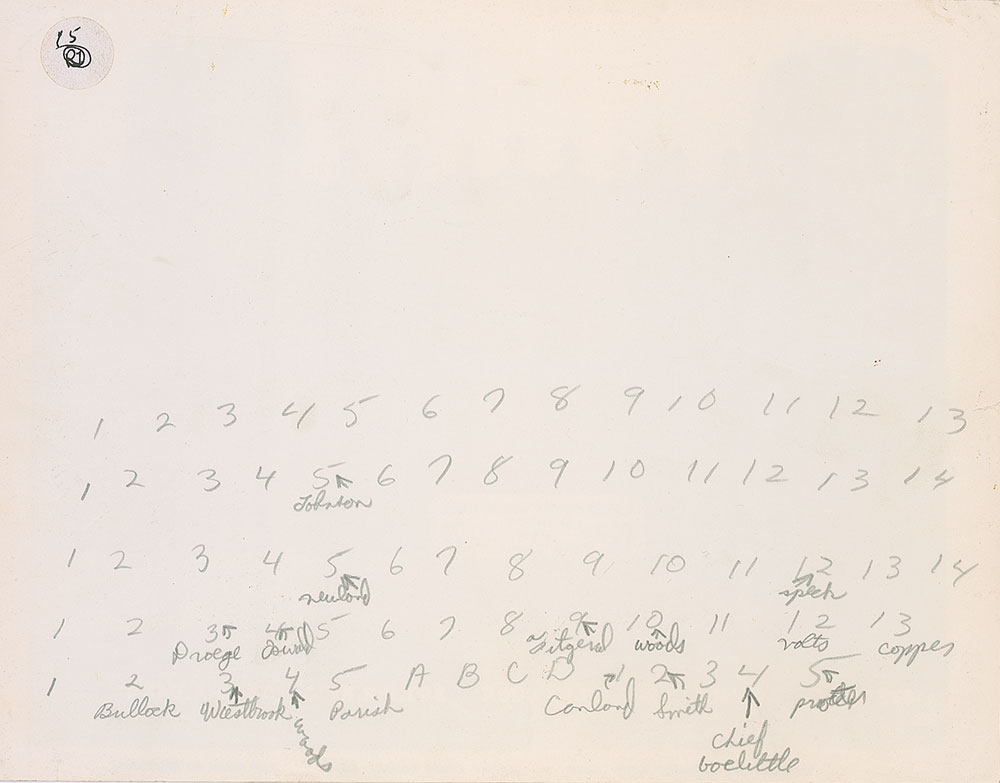 15
RD
1 2 3 4 5 6 7 8 9 10 11 12 13
1 2 3 4 5 6 7 8 9 10 11 12 13 14
Johnson
1 2 3 4 5 6 7 8 9 10 11 12 13 14
newland speck
1 2 3 4 5 6 7 8 9 10 11 12 13
Droege woods volts copper
1 2 3 4 5 A B C D 1 2 3 4 5
Bullock Westbrook Parish Smith
woods
Chief